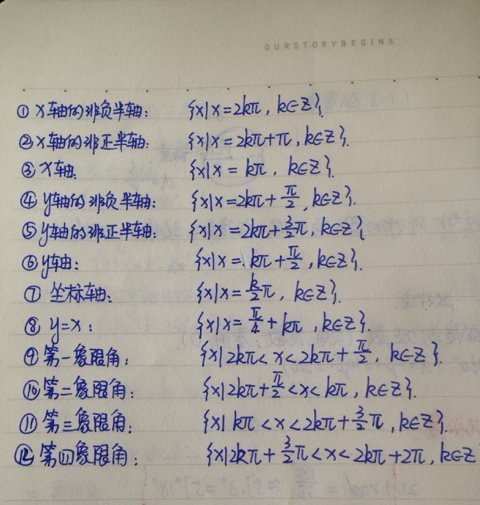 OURSTORYBEGINS
① x轴的非负半轴: {x|x=2kπ, k∈Z}.
② x轴的非正半轴: {x|x=2kπ+π, k∈Z}.
③ x轴: {x|x=kπ, k∈Z}.
④ y轴的非负半轴: {x|x=2kπ+π/2, k∈Z}.
⑤ y轴的非正半轴: {x|x=2kπ+3/2π, k∈Z}.
⑥ y轴: {x|x=kπ+π/2, k∈Z}.
⑦ 坐标轴: {x|x=k/2π, k∈Z}.
⑧ y=x: {x|x=π/4+kπ, k∈Z}.
⑨ 第一象限角: {x|2kπ<x<2kπ+π/2, k∈Z}.
⑩ 第二象限角: {x|2kπ+π/2<x<kπ, k∈Z}.
⑪ 第三象限角: {x|kπ<x<2kπ+3/2π, k∈Z}.
⑫ 第四象限角: {x|2kπ+3/2π<x<2kπ+2π, k∈Z